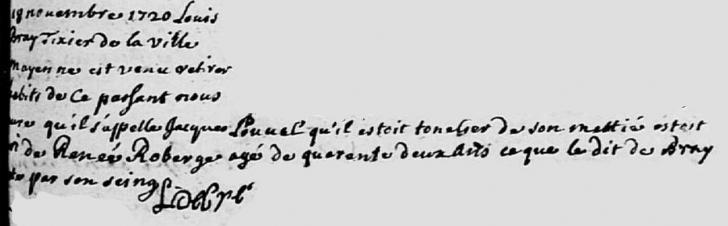 18 novembre 1720 Louis
Bray Tixier de la ville
mayenne est venu retirer
habits de Ce passant nous
qu'il s'appelle Jacques Louvel qu'il estoit tonelier de son mettié estoit
de Renée Roberge agé de quarente deux ans ce que le dit de Bray
par son seing